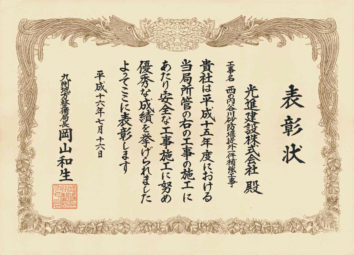 表彰状
光進建設株式会社 殿
工事名
西内谷川砂防堰堤外一件補強工事
貴社は平成十五年度における
当局所管の右の工事の施工に
あたり安全な工事施工に努め
優秀な成績を挙げられました
よってここに表彰します
平成十六年七月十六日
九州森林管理局長 岡山和生